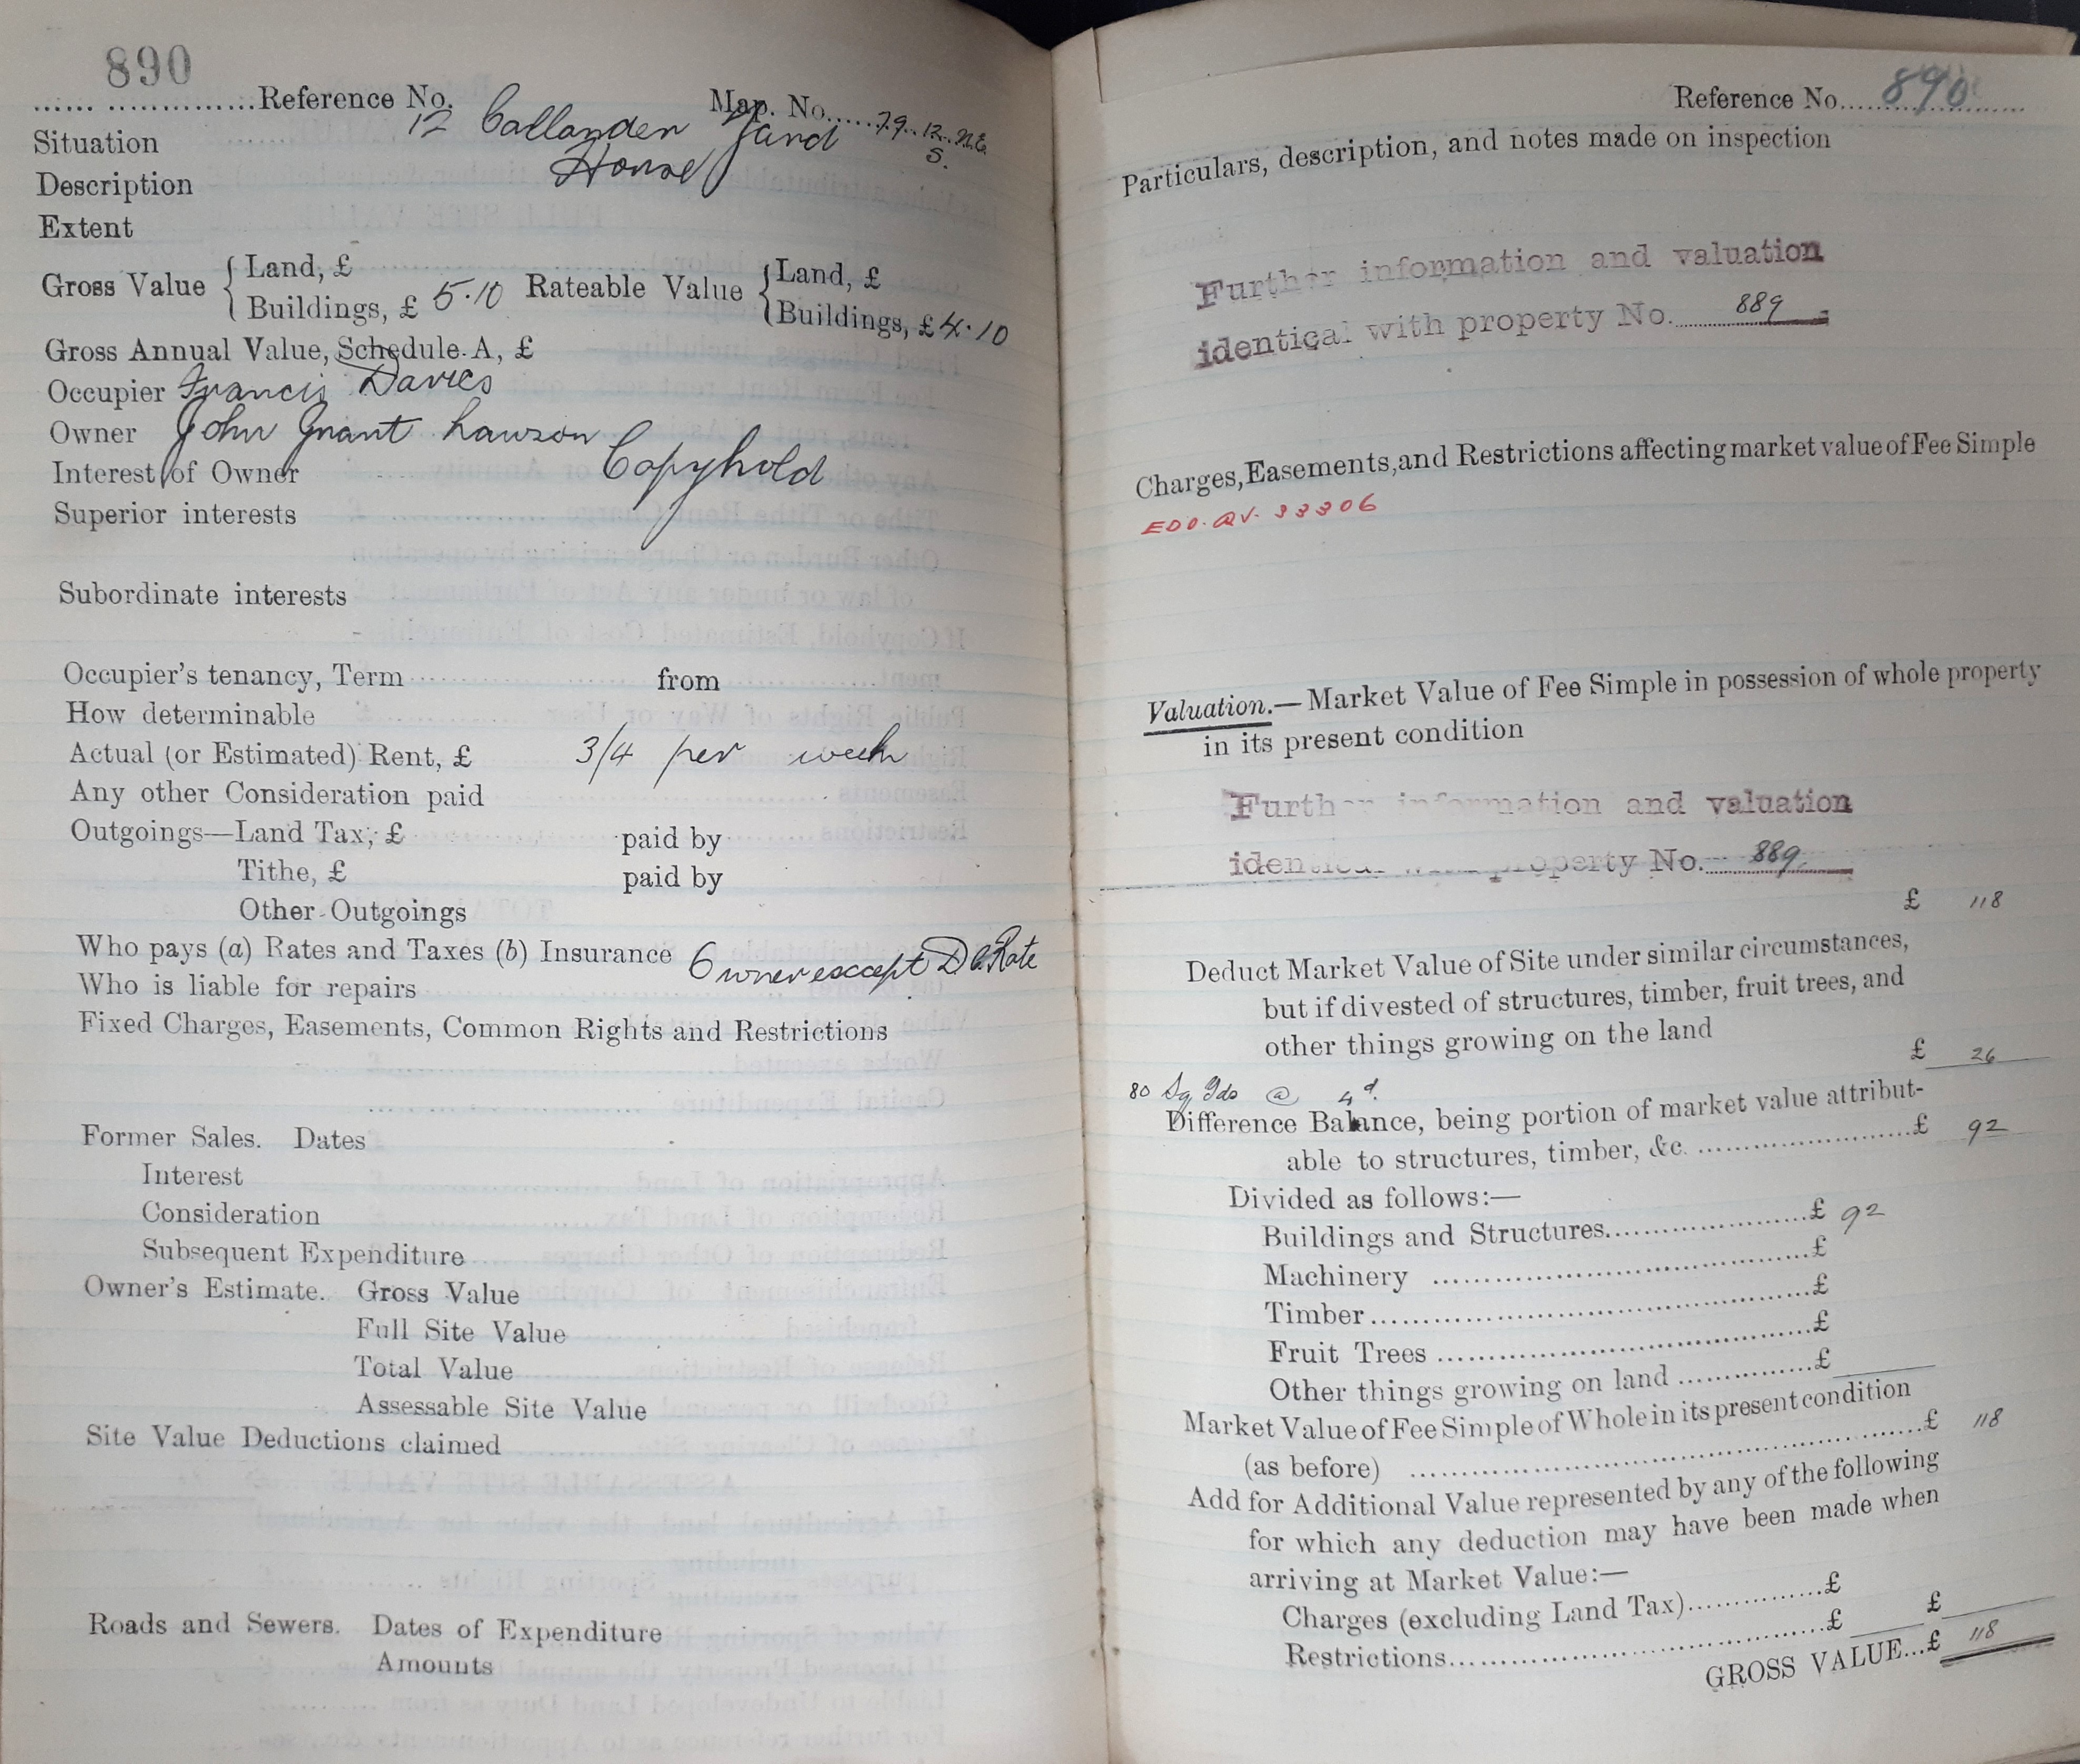 890
Reference No. Map. No. 79. 12. N.E.
S.
Situation 12 Callander Yard
Description House
Extent
Gross Value { Land, £
Buildings, £ 5.10 Rateable Value { Land, £
Buildings, £ 4.10
Gross Annual Value, Schedule A, £
Occupier Francis Davies
Owner John Grant Lawson
Interest of Owner Copyhold
Superior interests
Subordinate interests
Occupier's tenancy, Term from
How determinable
Actual (or Estimated) Rent, £ 3/4 per week
Any other Consideration paid
Outgoings—Land Tax, £ paid by
Tithe, £ paid by
Other Outgoings
Who pays (a) Rates and Taxes (b) Insurance Owner except D.C. Rate
Who is liable for repairs
Fixed Charges, Easements, Common Rights and Restrictions
Former Sales. Dates
Interest
Consideration
Subsequent Expenditure
Owner's Estimate. Gross Value
Full Site Value
Total Value
Assessable Site Value
Site Value Deductions claimed
Roads and Sewers. Dates of Expenditure
Amounts
Reference No. 890
Particulars, description, and notes made on inspection
Further information and valuation
identical with property No. 889
Charges, Easements, and Restrictions affecting market value of Fee Simple
33306
Valuation.—Market Value of Fee Simple in possession of whole property
in its present condition
Further information and valuation
identical with property No. 889
£ 118
Deduct Market Value of Site under similar circumstances,
but if divested of structures, timber, fruit trees, and
other things growing on the land
£ 26
80 Sq Yds @ 4d.
Difference Balance, being portion of market value attribut-
able to structures, timber, &c. £ 92
Divided as follows:—
Buildings and Structures £ 92
Machinery £
Timber £
Fruit Trees £
Other things growing on land £
Market Value of Fee Simple of Whole in its present condition
(as before) £ 118
Add for Additional Value represented by any of the following
for which any deduction may have been made when
arriving at Market Value:—
Charges (excluding Land Tax) £
Restrictions £ £
GROSS VALUE...£ 118